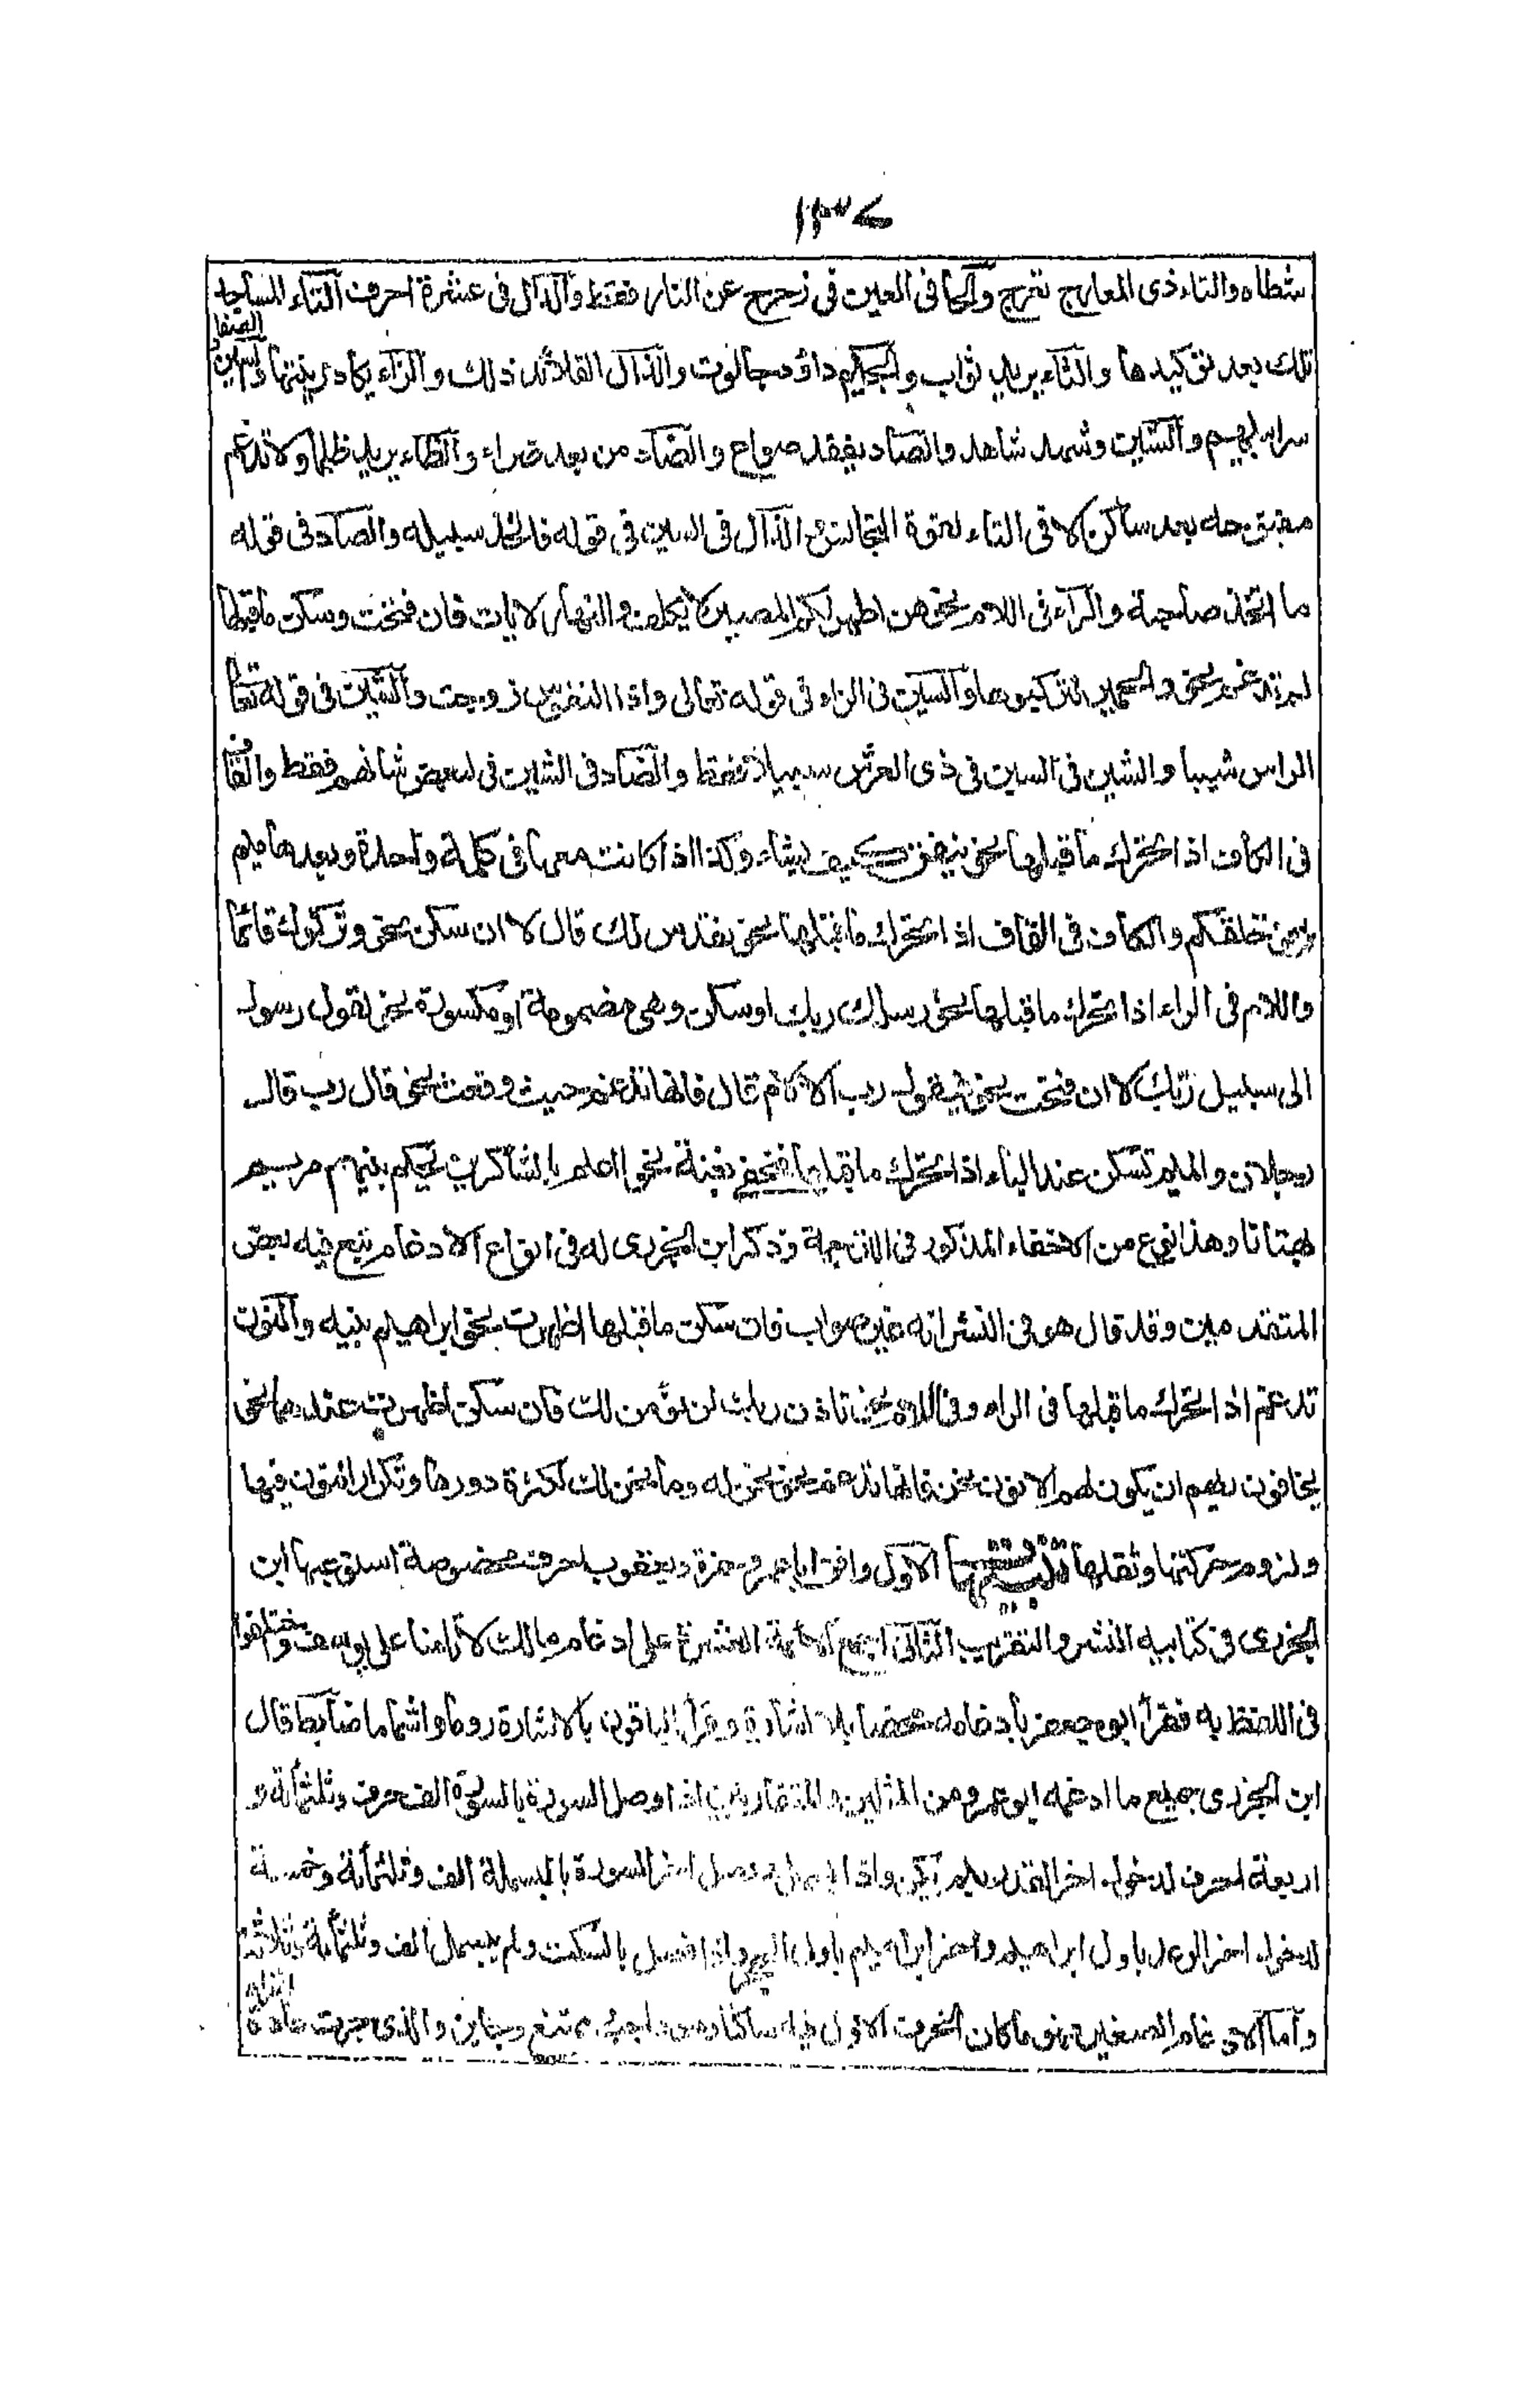 ١٣٧
شطاه والتاء ذى المعارج تعرج والحا فى العين فى زحزح عن النار فقط والدال فى عشرة احرف التاء المساجد
تلك بعد توكيدها والثاء يريد ثواب والجيم داؤد جالوت والذال القلائد ذلك والزاء يكاد زيتها والسين الاصفاد
سرابيلهم والشين وشهد شاهد والصاد نفقد صواع والضاد من بعد ضراء والظاء يريد ظلما ولا تدغم
مفتوحه بعد ساكن الا فى التاء لقوة التجانس والذال فى السين فى قوله فاتخذ سبيله والصاد فى قوله
ما اتخذ صاحبة والراء فى اللام نحو هن اطهر لكم المصير لا يكلف والنهار لايات فان فتحت وسكن ماقبلها
لم تدغم نحو والحمير لتركبوها والسين فى الزاء فى قوله تعالى واذا النفوس زوجت والشين فى قوله تعا
الراس شيبا والشين فى السين فى ذى العرش سبيلا فقط والضاد فى الشين فى لبعض شانهم فقط والقاف
فى الكاف اذا تحرك ما قبلها نحو ينفق كيف يشاء وكذا اذا كانت معها فى كلمة واحدة وبعدها ميم
نحو خلقكم والكاف فى القاف اذا تحرك ما قبلها نحو نقدس لك قال لا ان سكن نحو وتركوك قائما
واللام فى الراء اذا تحرك ما قبلها نحو رسل ربك اوسكن وهى مضمومة او مكسورة نحو لقول رسول
الى سبيل ربك لا ان فتحت نحو فيقول رب الا لام قال فانها تدغم حيث وقعت نحو قال رب قال
رجلان والميم تسكن عند الباء اذا تحرك ما قبلها فتخفى بغنة نحو اعلم بالشاكرين يحكم بينهم مريم
بهتانا وهذا نوع من الاخفاء المذكور فى الترجمة وذكر ابن الجزرى له فى انواع الادغام تبع فيه بعض
المتقدمين وقد قال هو فى النشر انه غير صواب فان سكن ما قبلها اظهرت نحو ابراهيم بنيه والنون
تدغم اذا تحرك ما قبلها فى الراء وفى اللام نحو تاذن ربك لن نؤمن لك فان سكن اظهرت عندهما نحو
يخافون ربهم ان يكون لهم الا نون نحن فانها تدغم نحو نحن له وما نحن لك لكثرة دورها وتكرار النون فيها
ولزوم حركتها وثقلها تنبيهان الاول وافق ابا عمرو حمزة ويعقوب احرف مخصوصة استوعبها ابن
الجزرى فى كتابيه النشر والتقريب الثانى اجمع الائمة العشرة على ادغام مالك لا تامنا على يوسف واختلفوا
فى اللفظ به فقرأ ابو جعفر بادغامه محضا بلا اشارة وقرأ الباقون بالاشارة روما واشماما ضابط قال
ابن الجزرى جميع ما ادغمه ابو عمرو من المثلين والمتقاربين اذا وصل السورة بالسورة الف حرف وثلثمائة و
اربعة احرف لدخول اخر القدر بلم يكن واذا بسمل ووصل اخر السورة بالبسملة الف وثلثمائة وخمسة
لدخول اخر الرعد باول ابراهيم واخر ابراهيم باول الحجر واذا فصل بالسكت ولم يبسمل الف وثلثمائة وثلاثة
واما الادغام الصغير فهو ما كان الحرف الاول فيه ساكنا وهو واجب وممتنع وجايز والذى جرت عادة القراء